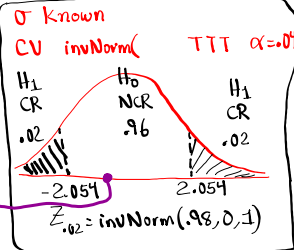 σ Known
CV invNorm( TTT α=.04
H₁ H₀ H₁
CR NCR CR
.02 .96 .02
-2.054 2.054
Z.₀₂=invNorm(.98,0,1)